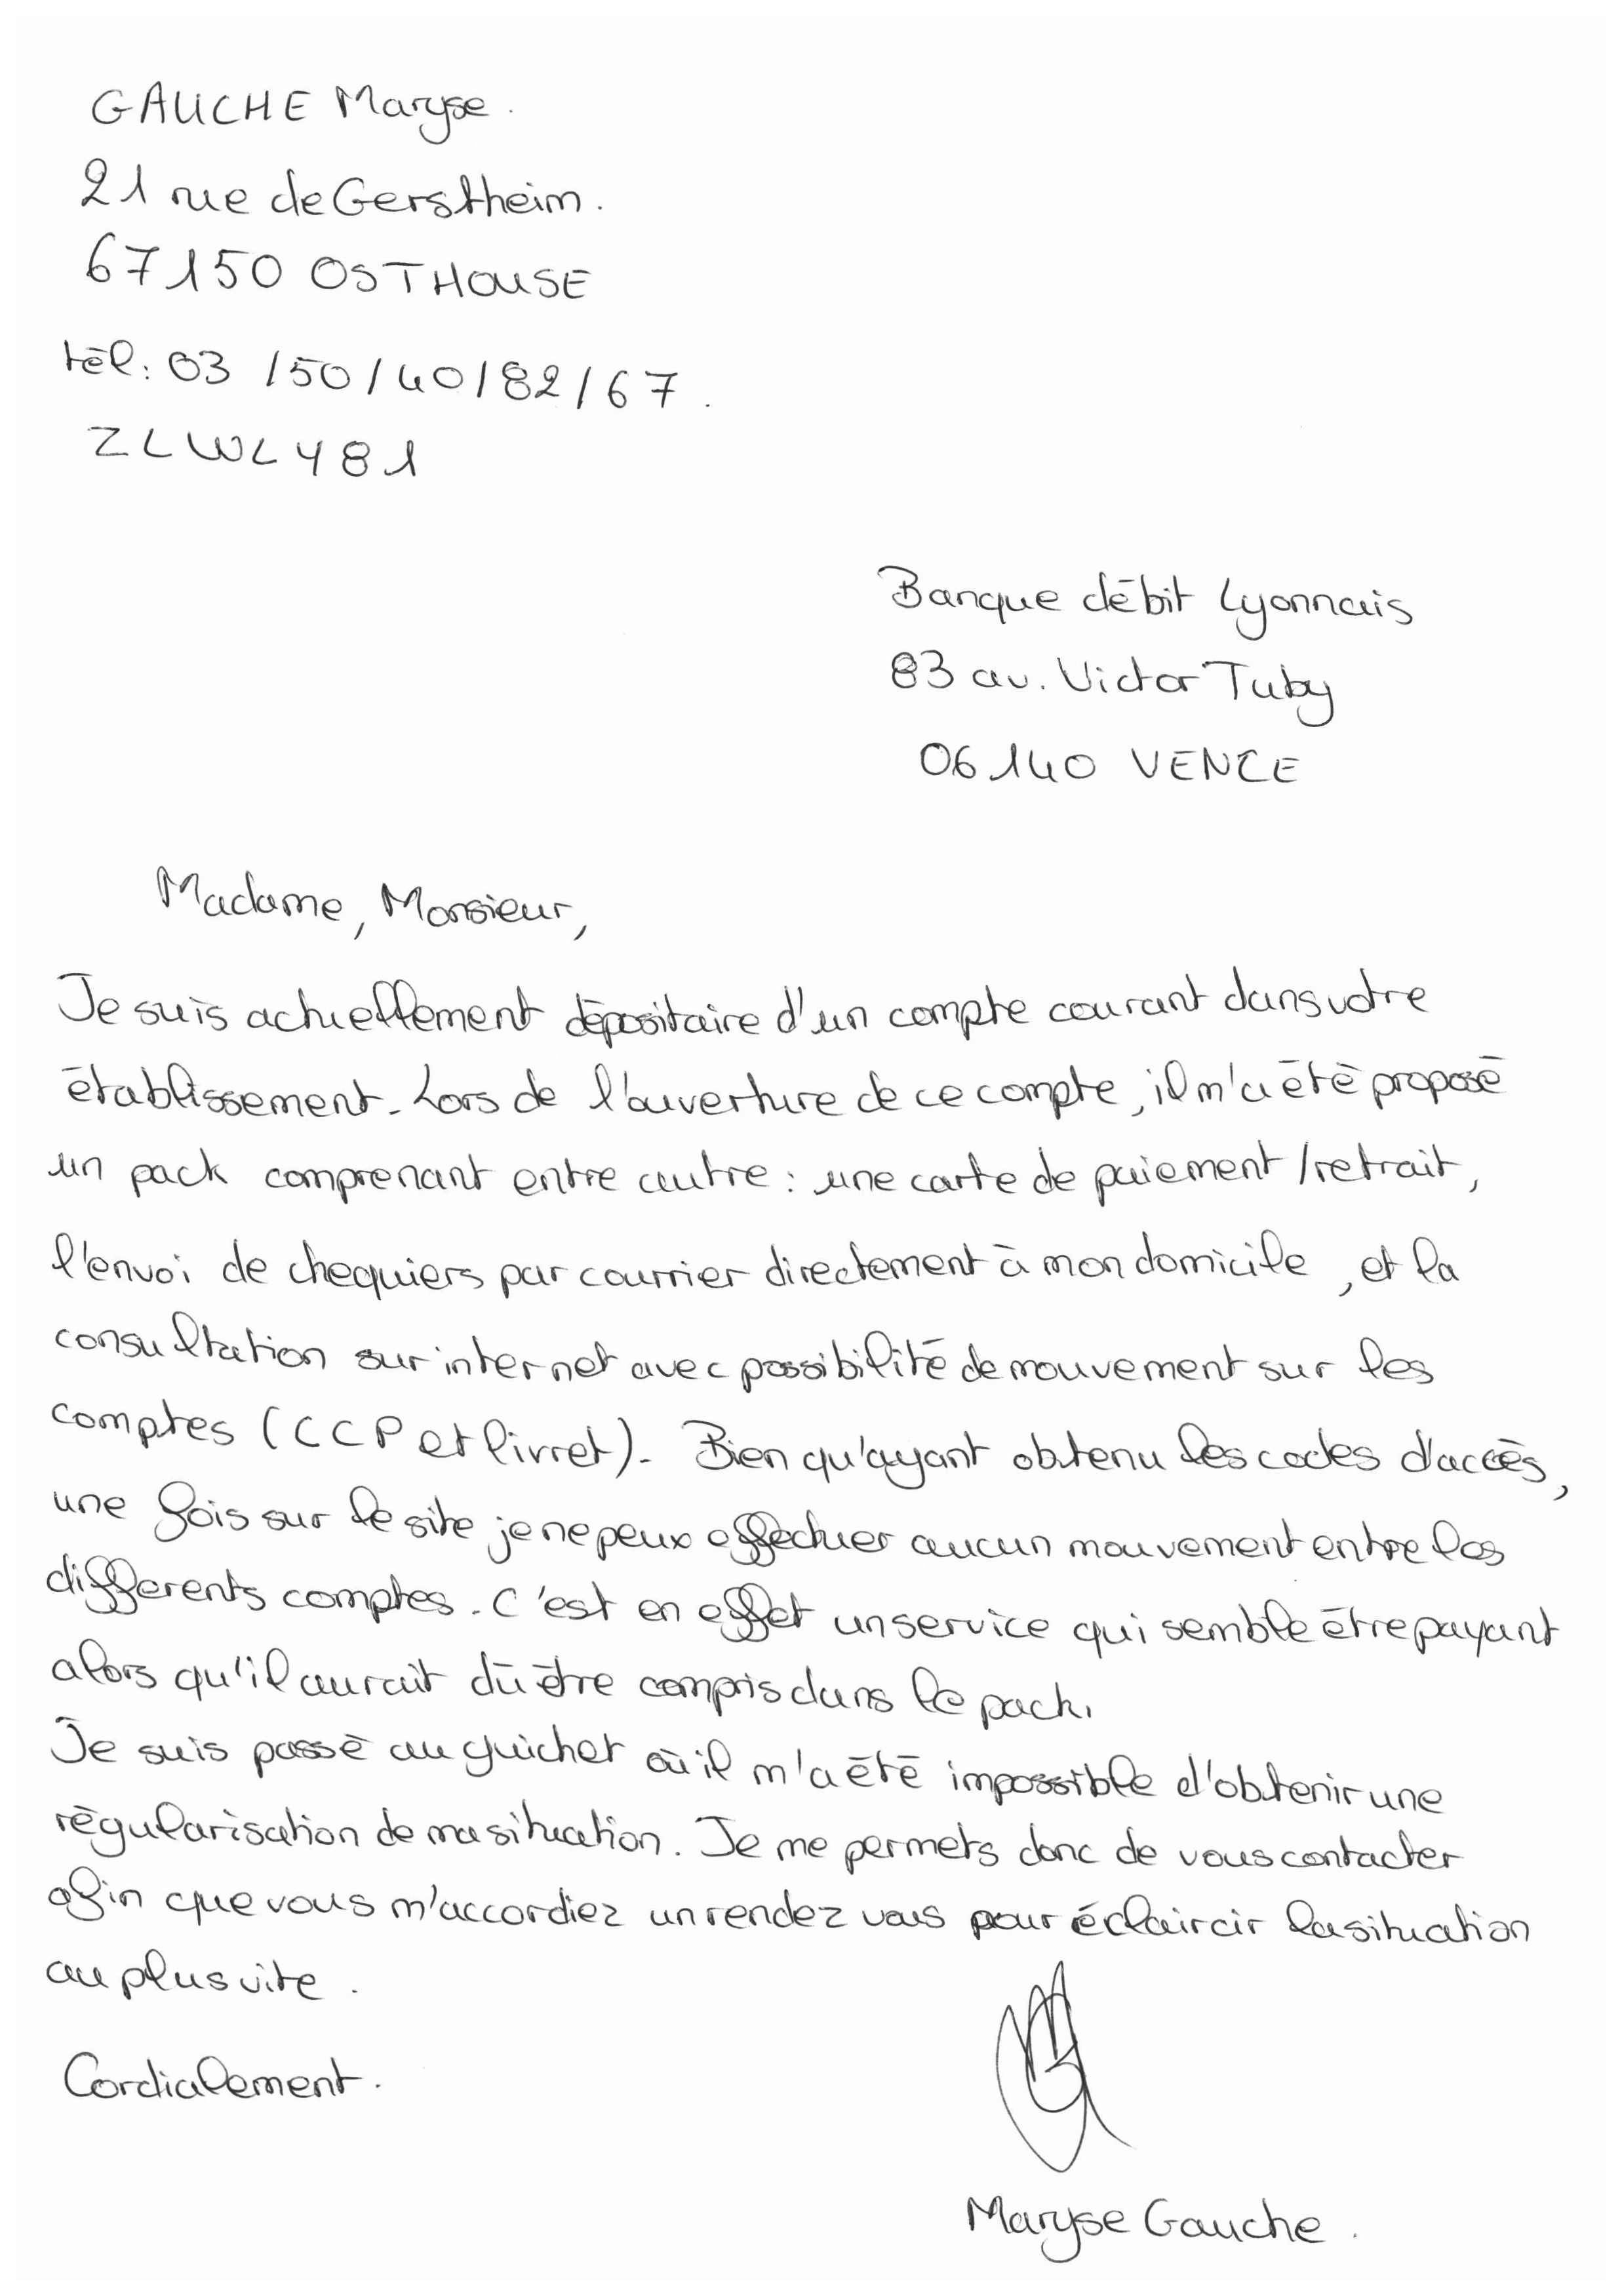 GAUCHE Maryse.
21 rue de Gerstheim.
67150 OSTHOUSE
tél: 03 /50/40/82/67.
ZLWL481
Banque débit Lyonnais
83 av. Victor Tuby
06140 VENCE
Madame, Monsieur,
Je suis actuellement dépositaire d'un compte courant dans votre
établissement. Lors de l'ouverture de ce compte, il m'a été proposé
un pack comprenant entre autre : une carte de paiement/retrait,
l'envoi de chequiers par courrier directement à mon domicile, et la
consultation sur internet avec possibilité de mouvement sur les
comptes (CCP et livret). Bien qu'ayant obtenu les codes d'accès,
une fois sur le site je ne peux effectuer aucun mouvement entre les
differents comptes. C'est en effet un service qui semble être payant
alors qu'il aurait dû être compris dans le pack.
Je suis passé au guichet où il m'a été impossible d'obtenir une
régularisation de ma situation. Je me permets donc de vous contacter
afin que vous m'accordiez un rendez vous pour éclaircir la situation
au plus vite.
Cordialement.
Maryse Gauche.